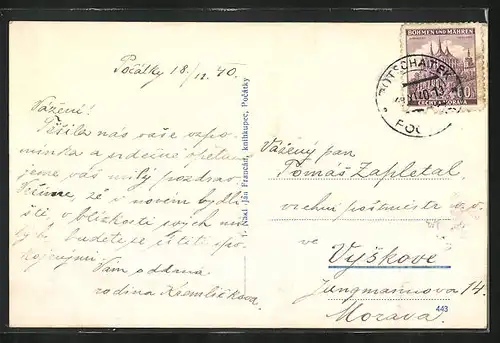 Počátky 18/12. 40.
Vážení!
Těšila nás vaše vzpo-
mínka a srdečně opětu-
jeme váš milý pozdrav.
Věříme, že v novém bydli-
šti, v blízkosti svých mi-
lých budete se cítiti spo-
kojenými.
Vám oddaná
rodina
1. Nákl. Jan Francán, knihkupec, Počátky
BÖHMEN UND MÄHREN
60
ČECHY A MORAVA
POTSCHATEK
POČ
Vážený pan
Tomáš Zapletal
vrchní poštmistr v. v.
ve
Vyškově
Jungmannova 14.
Morava.
443